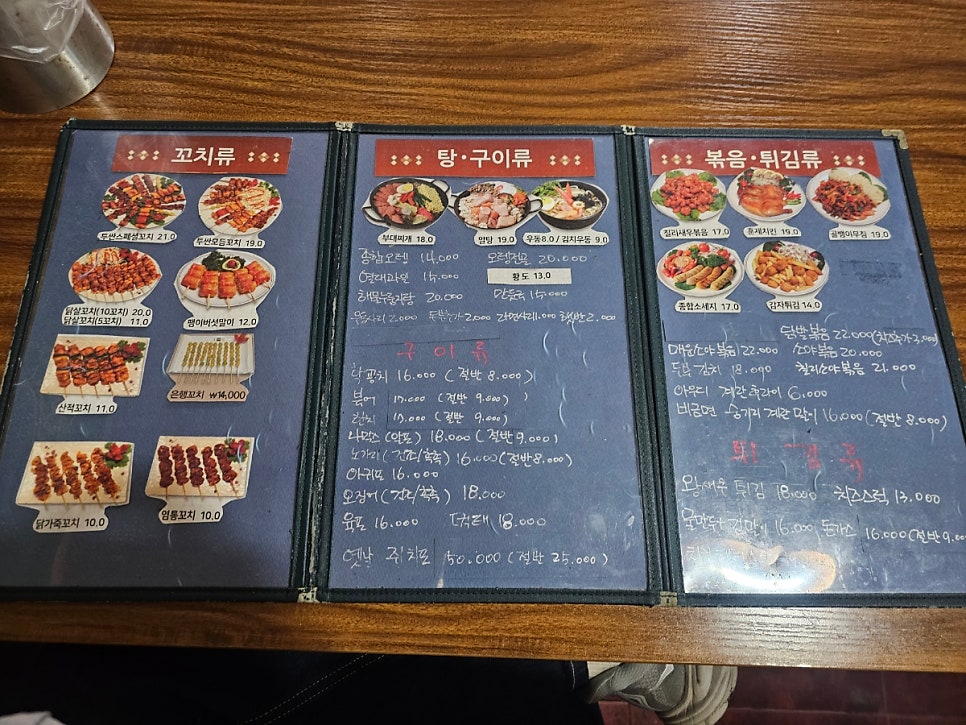 꼬치류
두싼스페셜꼬치 21.0
두싼모듬꼬치 19.0
닭살꼬치(10꼬치) 20.0
닭살꼬치(5꼬치) 11.0
팽이버섯말이 12.0
산적꼬치 11.0
은행꼬치 ₩14,000
닭가죽꼬치 10.0
염통꼬치 10.0
탕·구이류
부대찌개 18.0
알탕 19.0
우동8.0 / 김치우동 9.0
종합오뎅 14.000
오뎅전골 20.000
황도 13.0
15.000
해물누룽지탕 20.000
만둣국 15.000
우동사리 2.000
2.000
2.000
구이류
학꽁치 16.000 (절반 8.000)
북어 17.000 (절반 9.000)
한치 17.000 (절반 9.000)
18.000 (절반 9.000)
노가리 16.000 (절반 8.000)
아귀포 16.000
오징어 18.000
육포 16.000
먹태 18.000
옛날 쥐치포 50.000 (절반 25.000)
볶음·튀김류
칠리새우볶음 17.0
훈제치킨 19.0
골뱅이무침 19.0
종합소세지 17.0
감자튀김 14.0
닭발볶음 22.000
매운소야볶음 22.000
소야볶음 20.000
두부김치 18.000
칠리소야볶음 21.000
계란후라이 6.000
계란말이 16.000 (절반 8.000)
튀김류
왕새우튀김 18.000
치즈스틱 13.000
16.000
돈가스 16.000